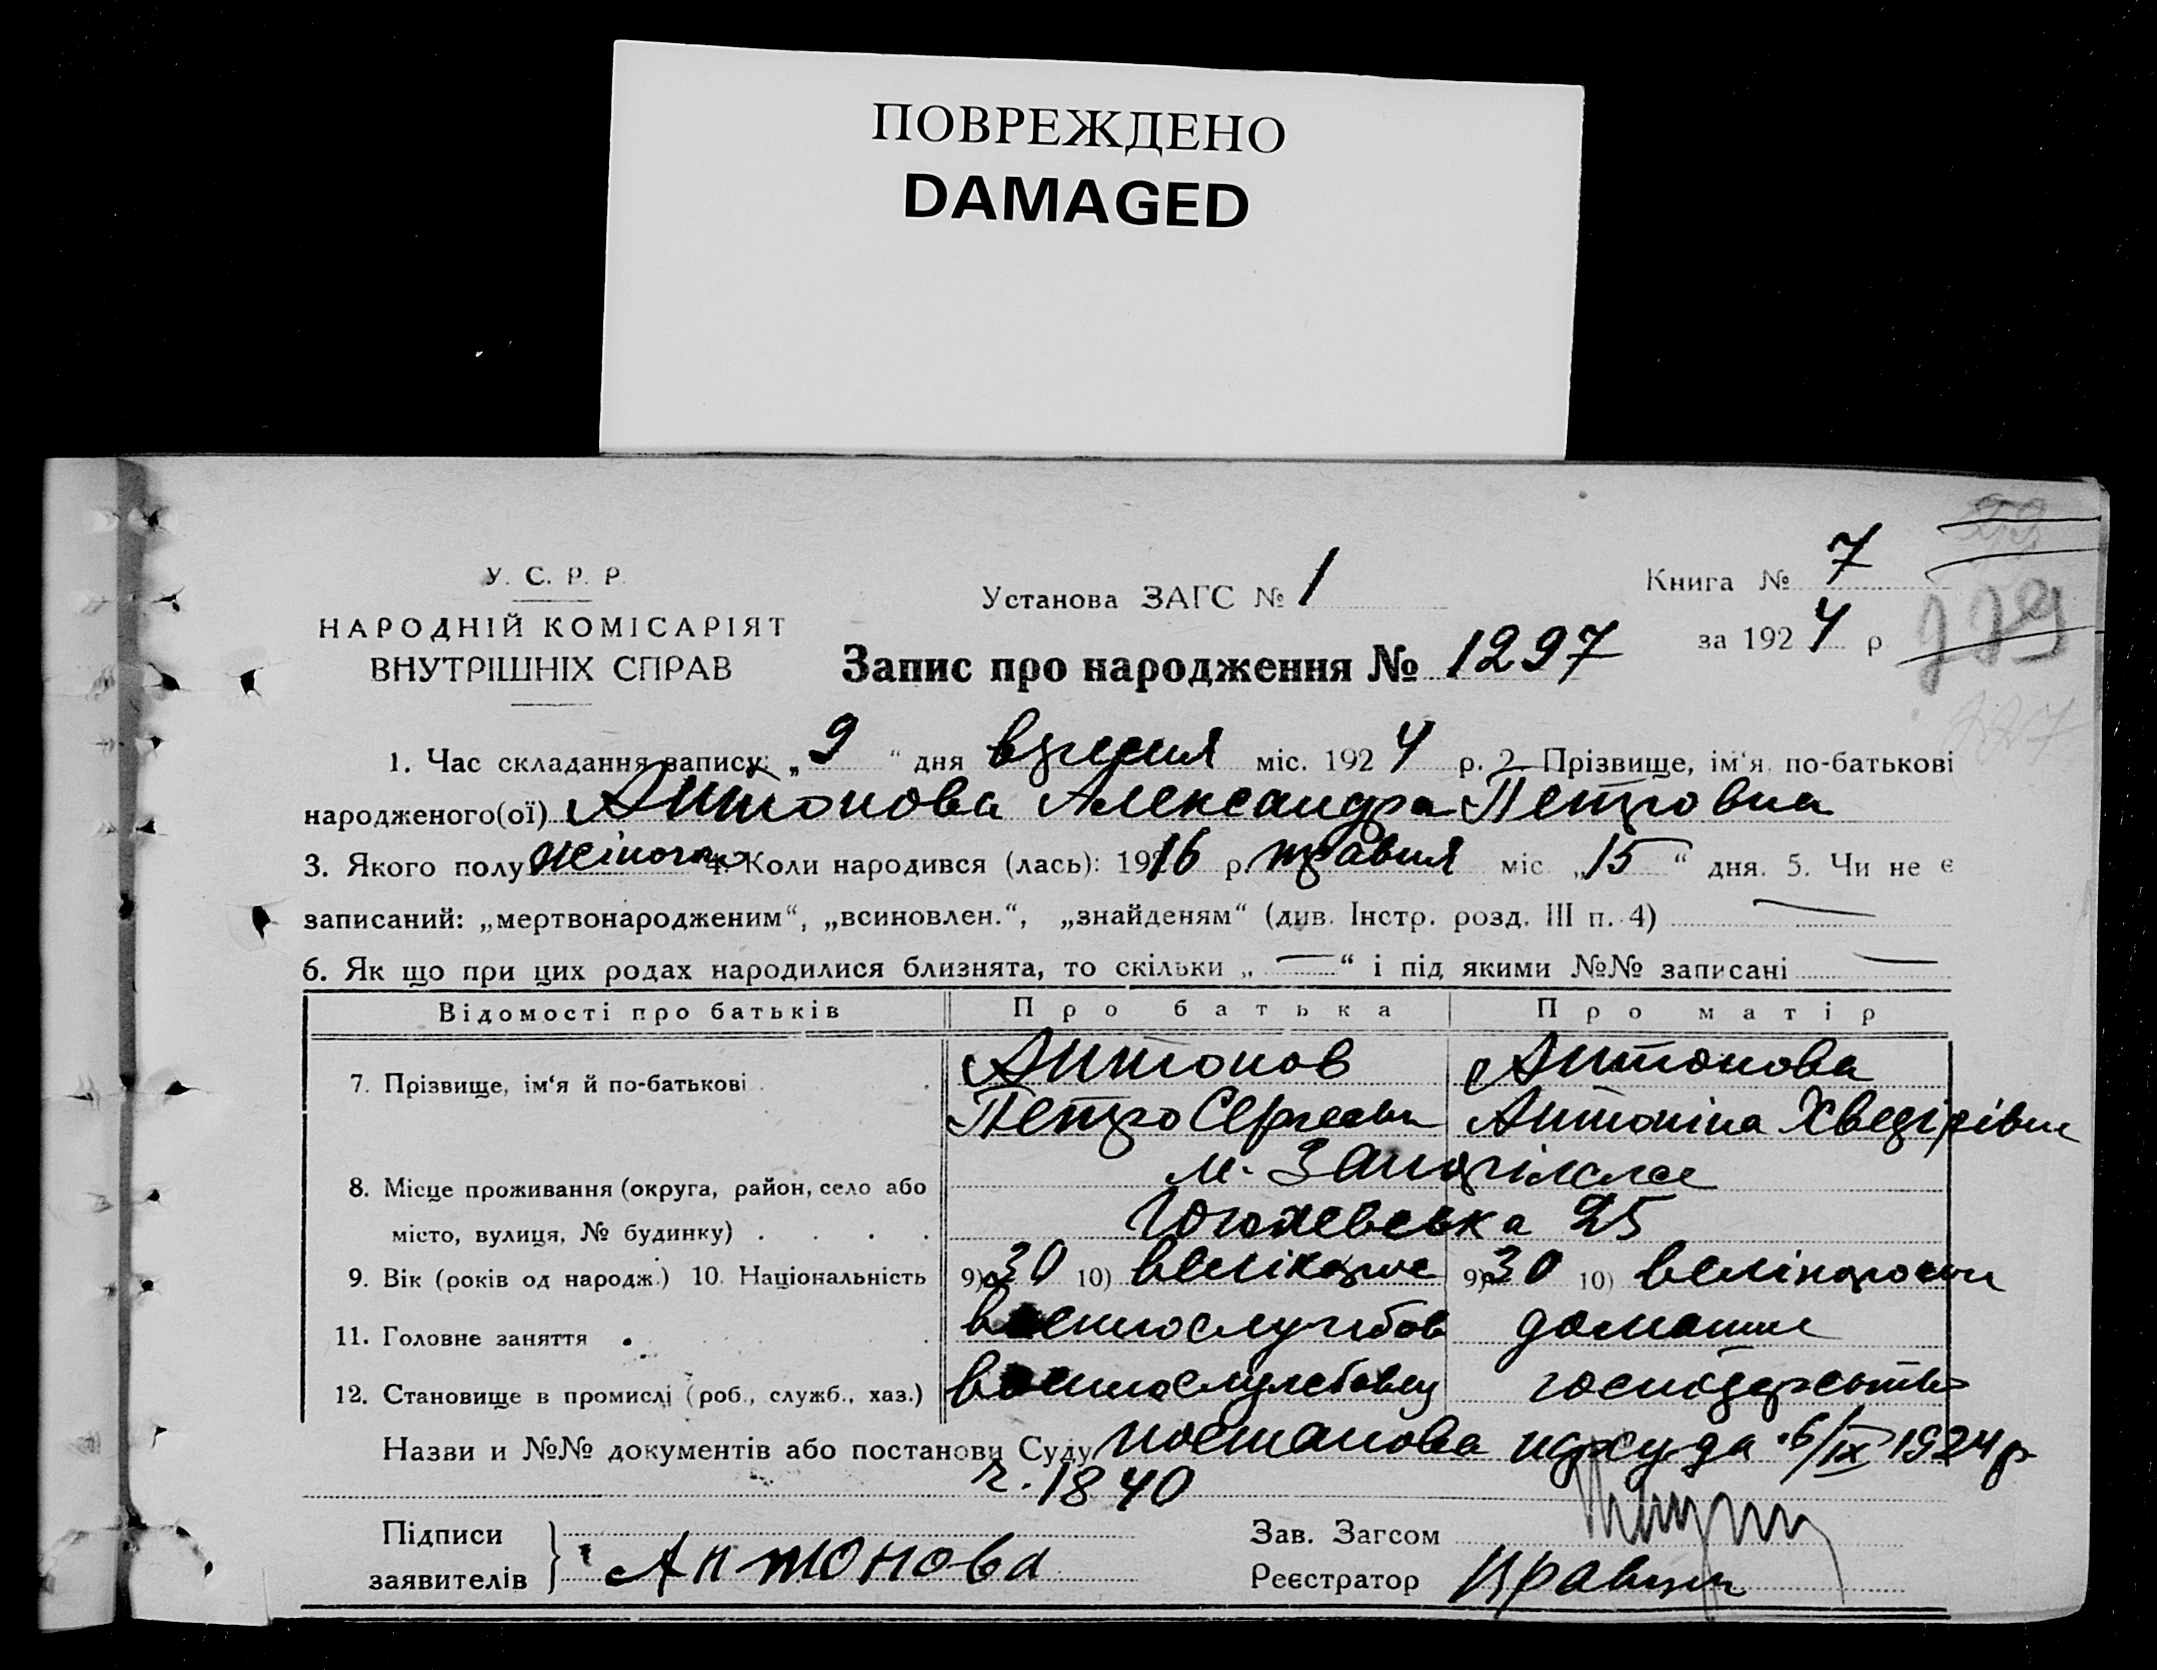 ПОВРЕЖДЕНО
DAMAGED
У. С. Р. Р.
НАРОДНІЙ КОМІСАРІЯТ
ВНУТРІШНІХ СПРАВ
Установа ЗАГС № 1
Запис про народження № 1297
Книга № 7
за 1924 р
1. Час складання запису: „9“ дня вересня міс. 1924 р. 2. Прізвище, ім‘я, по-батькові
народженого(ої) Антонова Александра Петровна
3. Якого полу жіночого 4. Коли народився (лась): 1916 р. травня міс „15“ дня. 5. Чи не є
записаний: „мертвонародженим“, „всиновлен.“, „знайденям“ (див. Інстр. розд. III п. 4) —
6. Як що при цих родах народилися близнята, то скільки „—“ і під якими №№ записані —
Відомості про батьків Про батька Про матір
7. Прізвище, ім‘я й по-батькові Антонов Антонова
Петро Сергеевич Антоніна Хведірівна
8. Місце проживання (округа, район, село або м. Запоріжжя
місто, вулиця, № будинку) 25
9. Вік (років од народж.) 10. Національність 9) 30 10) 9) 30 10)
11. Головне заняття домашнє
12. Становище в промислі (роб., служб., хаз.) господарство
Назви и №№ документів або постанови Суду постанова нарсуда 6/IX 1924 р
ч. 1840
Підписи
заявителів Антонова
Зав. Загсом
Реєстратор